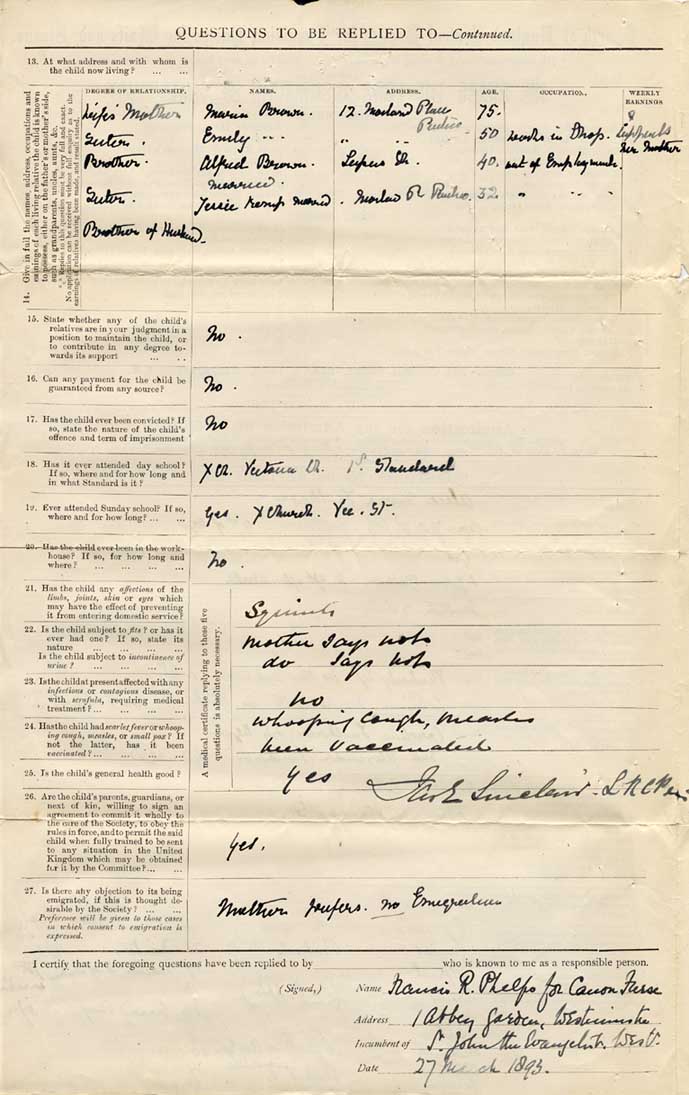 QUESTIONS TO BE REPLIED TO—Continued.
13. At what address and with whom is
the child now living? ... ...
14. Give in full the names, address, occupations and
earnings of each living relative the child is known
to possess, either on the father's or mother's side,
such as grandparents, uncles, aunts, &c.
*** Replies to this question must be very full and exact.
No application can be received without full enquiry as to the
earnings of relatives having been made, and result stated.
DEGREE OF RELATIONSHIP. NAMES. ADDRESS. AGE. OCCUPATION. WEEKLY EARNINGS
Wife's Mother Maria Brown. 12. Place 75.
Pimlico
Sister. Emily " " " " 50 works in Shop. Supports
her Mother
Brother. Alfred Brown. St. 40. out of Employment.
married.
Sister. Jessie Kemp married. Pl Pimlico. 32 " " "
Brother of Husband.
15. State whether any of the child's
relatives are in your judgment in a
position to maintain the child, or
to contribute in any degree to-
wards its support ... ...
No.
16. Can any payment for the child be
guaranteed from any source?
No.
17. Has the child ever been convicted? If
so, state the nature of the child's
offence and term of imprisonment
No
18. Has it ever attended day school?
If so, where and for how long and
in what Standard is it?
X Ch. 1st Standard
19. Ever attended Sunday school? If so,
where and for how long? ... ...
Yes. X Church. Vic. St.
20. Has the child ever been in the work-
house? If so, for how long and
where? ... ... ... ...
No.
A medical certificate replying to these five
questions is absolutely necessary.
21. Has the child any affections of the
limbs, joints, skin or eyes which
may have the effect of preventing
it from entering domestic service?
Squints
22. Is the child subject to fits? or has it
ever had one? If so, state its
nature ... ... ... ...
Mother says not
Is the child subject to incontinence of
urine? ... ... ... ...
do says not
23. Is the child at present affected with any
infectious or contagious disease, or
with scrofula, requiring medical
treatment? ... ... ... ...
no
24. Has the child had scarlet fever or whoop-
ing cough, measles, or small pox? If
not the latter, has it been
vaccinated? ... ... ... ...
Whooping Cough, Measles
been Vaccinated
25. Is the child's general health good?
Yes
Sinclair. L R C P
26. Are the child's parents, guardians, or
next of kin, willing to sign an
agreement to commit it wholly to
the care of the Society, to obey the
rules in force, and to permit the said
child when fully trained to be sent
to any situation in the United
Kingdom which may be obtained
for it by the Committee? ... ...
Yes.
27. Is there any objection to its being
emigrated, if this is thought de-
sirable by the Society? ... ...
Preference will be given to those cases
in which consent to emigration is
expressed.
Mother prefers. no Emigration
I certify that the foregoing questions have been replied to by who is known to me as a responsible person.
(Signed,) Name Francis R. Phelps for Canon Furse
Address 1 Abbey Garden, Westminster
Incumbent of S. John the Evangelist. West.
Date 27 March 1893.